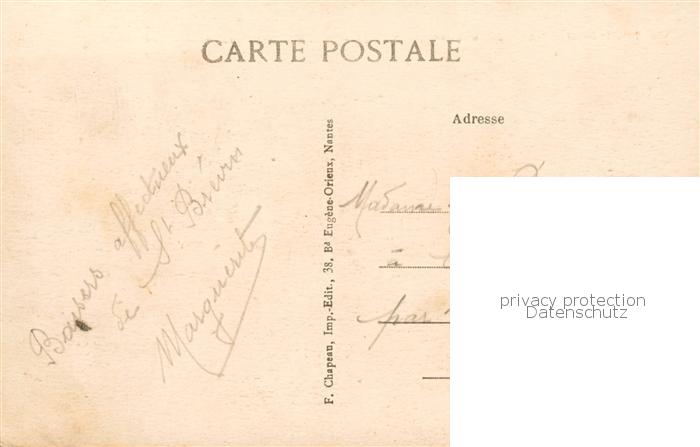 CARTE POSTALE
Adresse
Baisers affectueux
de St Brévin
Marguerite
F. Chapeau, Imp.-Edit., 38, Bd Eugène-Orieux, Nantes
Madame
à
par
privacy protection
Datenschutz